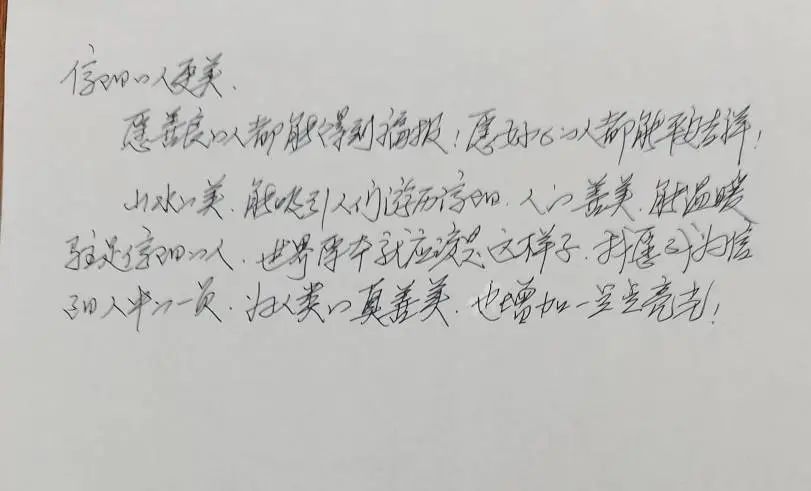 信阳的人更美.
愿善良的人都能得到福报!愿好心的人都能平安吉祥!
山水的美.能吸引人们游历信阳.人的善美.能温暖
驻足信阳的人.世界原本就应该是这样子.我愿成为信
阳人中的一员.为人类的真善美.也增加一点点亮光!